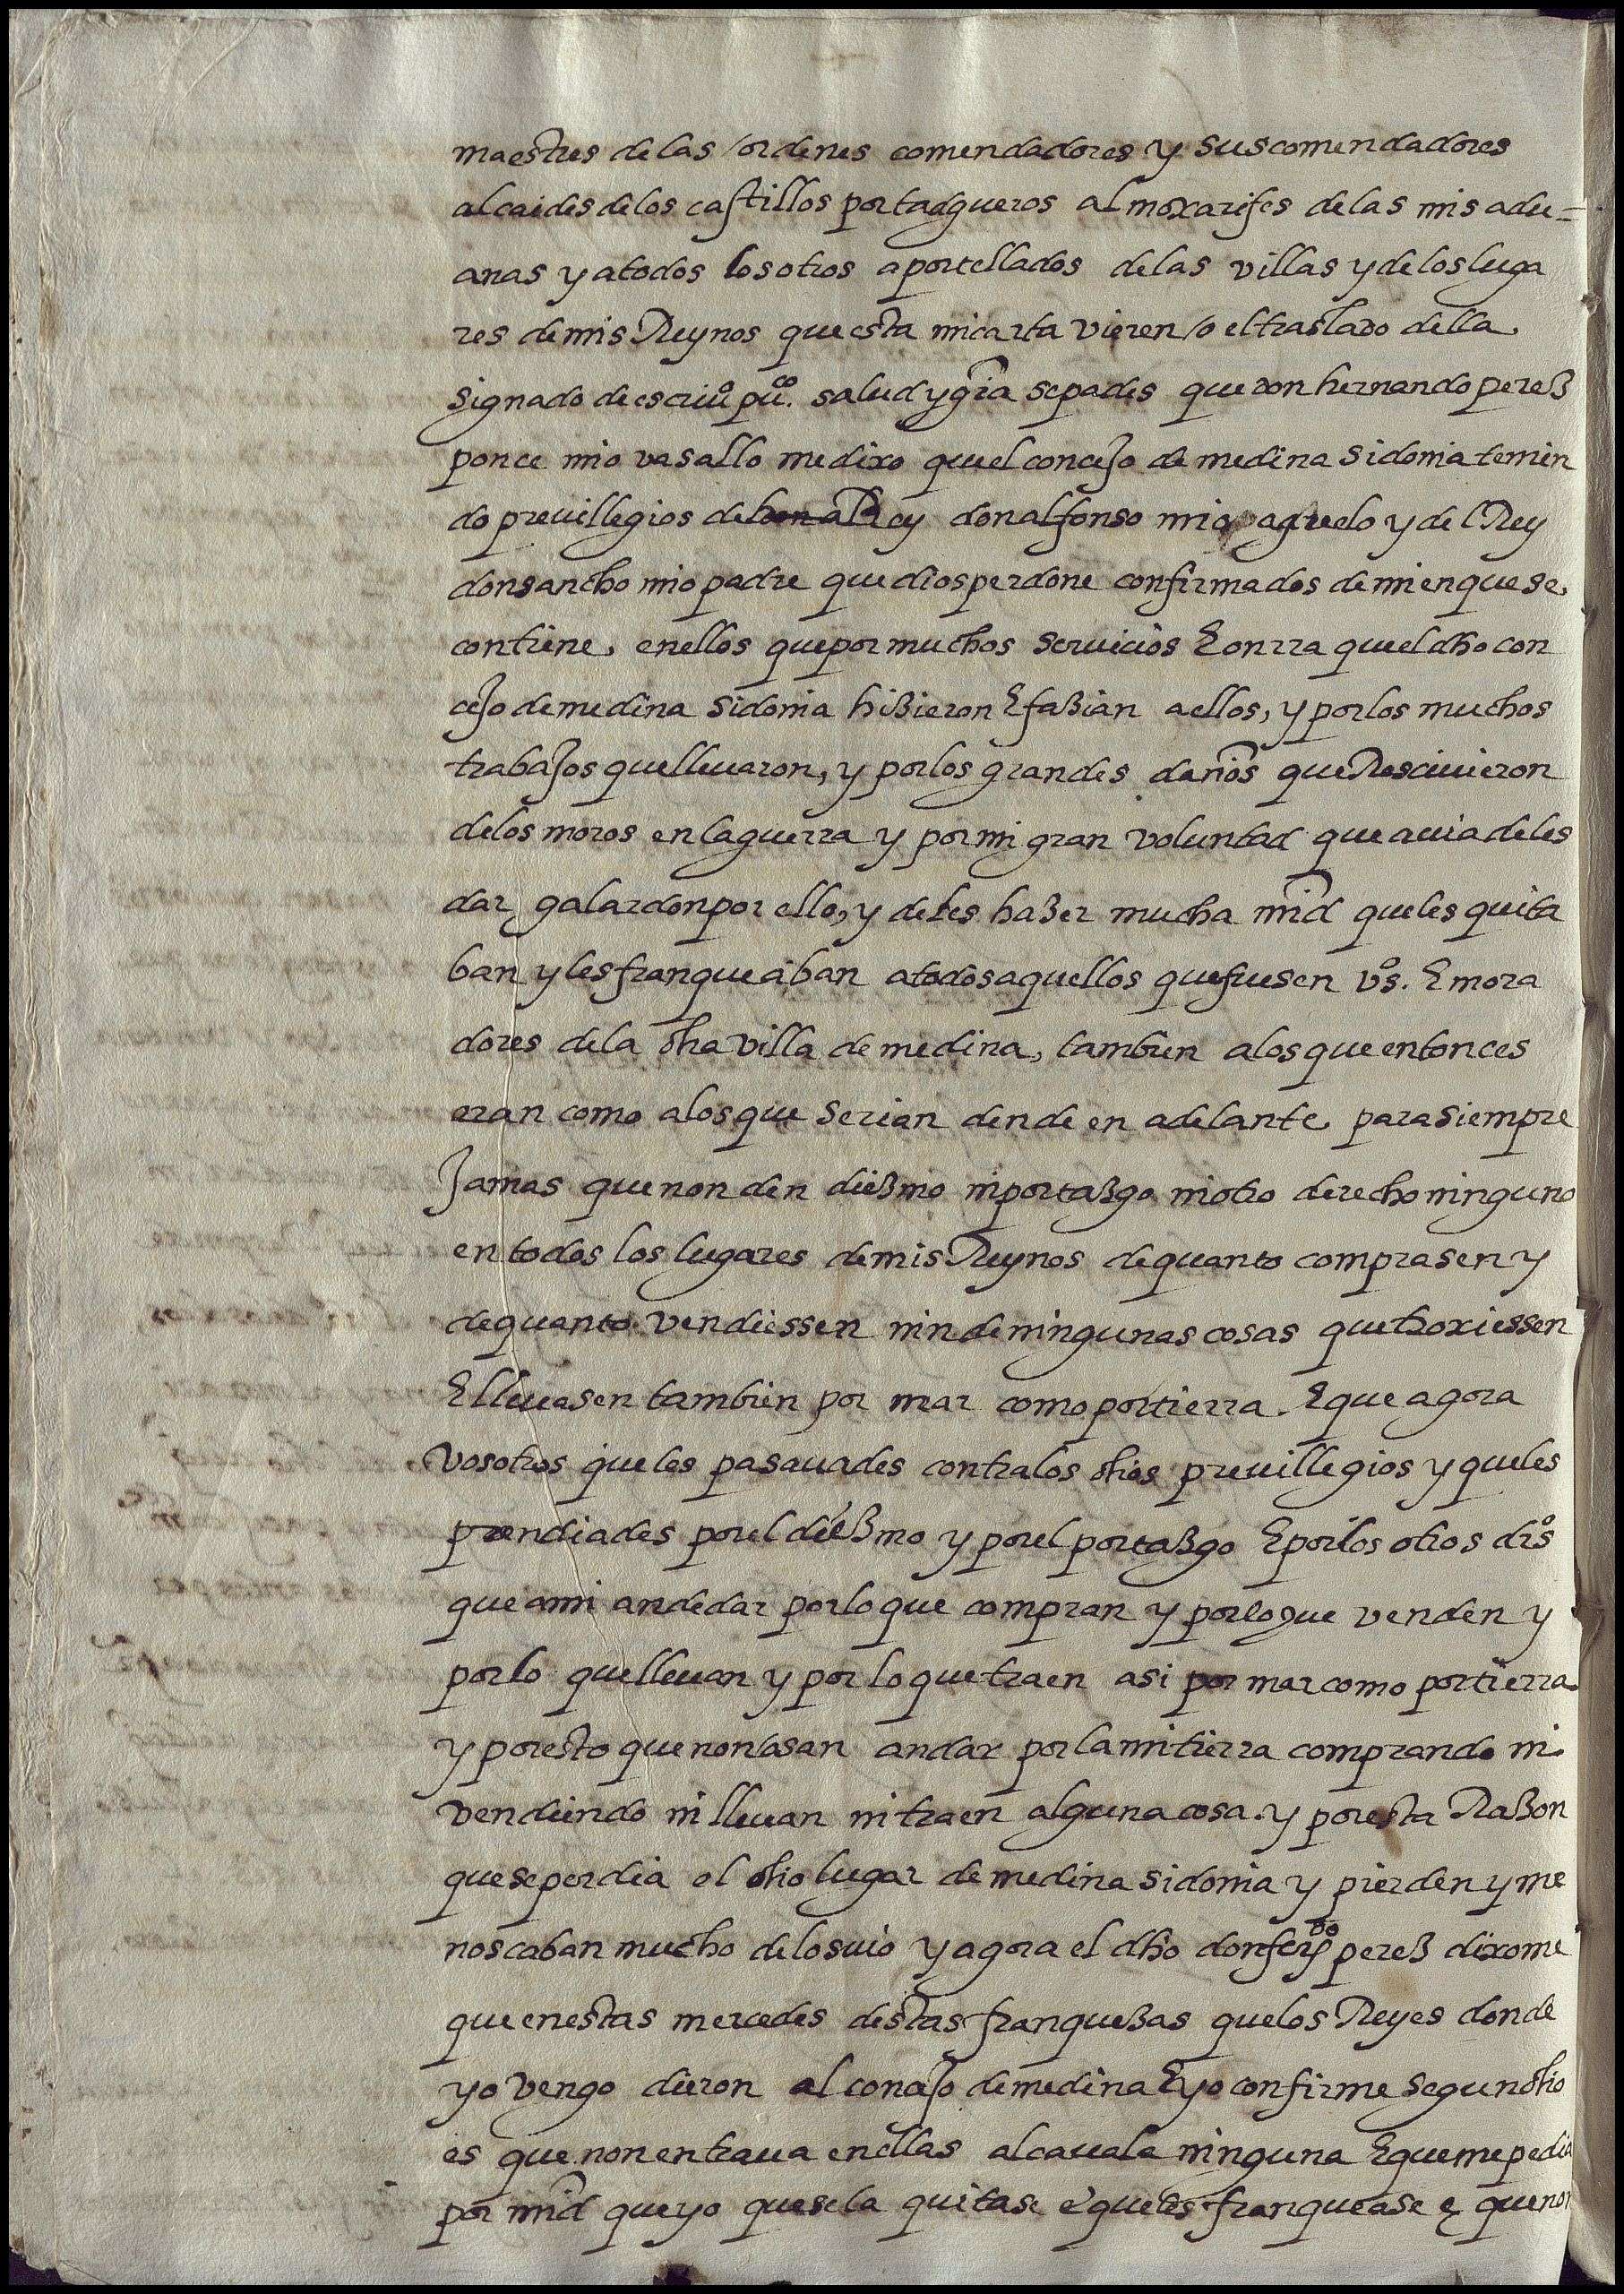 maestres delas ordenes comendadores y suscomendadores
alcaides delos castillos portadgueros almoxarifes delas mis adu=
anas y atodos losotros aportellados delas villas ydelosluga
res demis Reynos questa micarta vieren /o eltraslado della
signado de escriuº puco. salud ygria sepades que don hernando perez
ponce mio vasallo medixo quel concejo de medina sidonia temien
do preuillegios del Rey donalfonso mio aguelo y del Rey
donsancho mio padre que diosperdone confirmados demi enquese
contiene enellos quepor muchos seruicios E onrra queldho con
cejo demedina sidonia hizieron E fazian aellos, y porlos muchos
trabajos quelleuaron, y porlos grandes daños queResciuieron
delos moros enlaguerra y pormi gran voluntad queauiadeles
dar galardonpor ello, y deles hazer mucha mrd queles quita
ban ylesfranqueaban atodosaquellos quefuesen vºs. E mora
dores dela dha villa de medina, tambien alosqueentonces
eran como alosque serian dende en adelante parasiempre
Jamas quenon den diezmo niportazgo niotro derechoninguno
entodos los lugares demis Reynos dequanto comprasen y
dequanto vendiessen nin deningunas cosas quetroxiessen
E lleuasen tambien por mar comoportierra. E que agora
vosotros queles pasauades contralos dhos preuillegios y queles
prendiades porel diezmo y porel portazgo E porlos otros drºs
queami andedar porloque compran y porloque venden y
porlo quelleuan y por lo quetraen asi por marcomo portierra
y poresto quenon osan andar porlamitierra comprando ni
vendiendo nilleuan nitraen algunacosa. y poresta Razon
queseperdia el dho lugar de medina sidonia y pierden y me
noscaban mucho delosuio y agora el dho don ferdo perez dixome
que enestas mercedes destas franquezas quelos Reyes donde
yo vengo dieron al concejo demedina E yo confirme segundho
es que nonentraua enellas alcauala ninguna E quemepedia
por mrd queyo quesela quitase e queles franquease e quenon